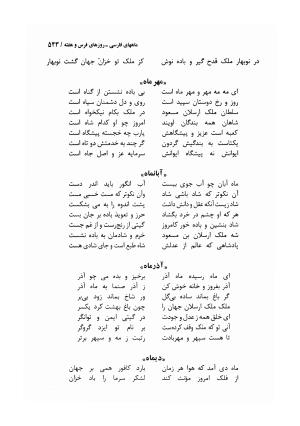 ماههای فارسی ـ روزهای فرس و هفته / ۵۴۳
در نوبهار ملک قدح گیر و باده نوش کز ملک تو خزان جهان گشت نوبهار
*مهر ماه*
ای مه مهر و مهر ماه است بی باده نشستن از گناه است
روز و رخ دوستان سپید است روی و دل دشمنان سیاه است
سلطان ملک ارسلان مسعود در ملک بکام نیکخواه است
شاهان همه بندگان اویند امروز چو او کدام شاه است
کعبه است عزیز و پیشگاهش یارب چه خجسته پیشگاه است
یکتاست به بندگیش گردون گر چند به خدمتش دو تاه است
ایوانش نه پیشگاه ایوانش سرمایه عز و اصل جاه است
*آبانماه*
ماه آبان چو آب جوی ببست آب انگور باید اندر دست
آن نکوتر که شاد باشی شاد وآن نکوتر که مست خسبی مست
شاد زیست آنکه عقل و دانش داشت پشت اندوه را به می بشکست
هر که او چشم در خرد بگشاد حرز و تعویذ باده بر جان بست
شاد بنشین و باده خور که کنون گیتی از رنجست و از غم جست
شه ملک ارسلان بن مسعود خرم و شادمان به باده نشست
پادشاهی که عالم از عدلش شاه طبع است و جای شادی هست
*آذرماه*
ای ماه رسیده ماه آذر برخیز و بده می چو آذر
آذر بفروز و خانه خوش کن ز آذر صنما به ماه آذر
گر باغ بماند ساده بی‌گل ور شاخ بماند زود بی‌بر
ملک ملک ارسلان جهان را چون باغ بهشت کرد یکسر
ای خلق همه ز عدل و جودت در گیتی ایمن و توانگر
آنی تو که ملک وقف کرده‌ست بر نام تو ایزد گروگر
تا هست سپهر و مهر بادت رتبت ز مه و سپهر برتر
*دیماه*
ماه دی آمد که هوا هر زمان بارد کافور همی بر جهان
از فلک امروز مؤنث کند لشکر سرما را باد خزان